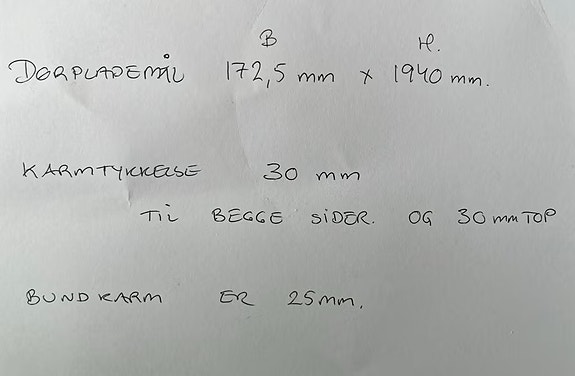 B H.
DØRPLADEMÅL 172,5 mm x 1940 mm.
KARMTYKKELSE 30 mm
TIL BEGGE SIDER. OG 30 mm TOP
BUNDKARM ER 25mm.